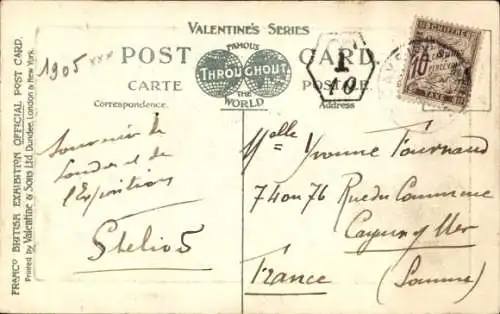 VALENTINE'S SERIES
FAMOUS
POST CARD
THROUGHOUT
THE WORLD
CARTE POSTALE
Correspondence.
Address
FRANCO BRITISH EXHIBITION OFFICIAL POST CARD.
Printed by Valentine & Sons Ltd. Dundee, London & New York.
1905 xxx
T
10
CHIFFRE
10 CENTIMES
TAXE
Souvenir de
Londres et de
l'Exposition
Melle Yvonne Fournaud
74 ou 76 Rue du Commerce
Cayeux s/ Mer
France (Somme)